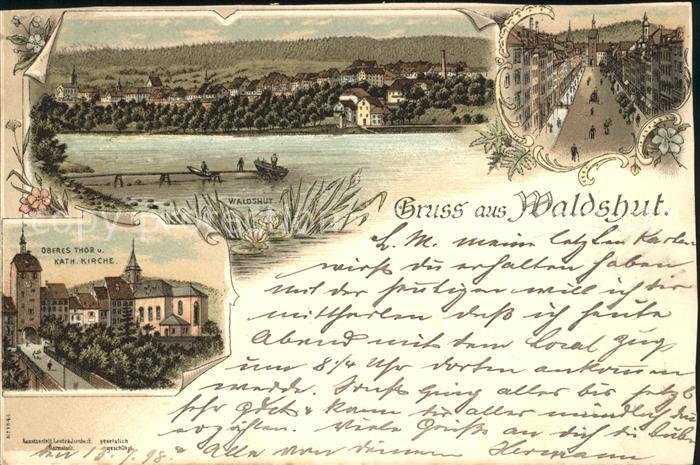 WALDSHUT
Gruss aus Waldshut.
OBERES THOR u.
KATH. KIRCHE.
L. M. meine letzten Karten
wirst du erhalten haben
mit der heutigen will ich dir
mittheilen daß ich heute
Abend mit dem Local Zug
um 8 1/4 Uhr dorten ankommen
werde. Sonst ging alles bis jetzt
sehr gut & kann dir alles mündlich
erzählen. Viele Grüße an dich die
Alle von deinem Hermann
Kunstanstalt gesetzlich
Darmstadt. geschützt.
den 15. 98.